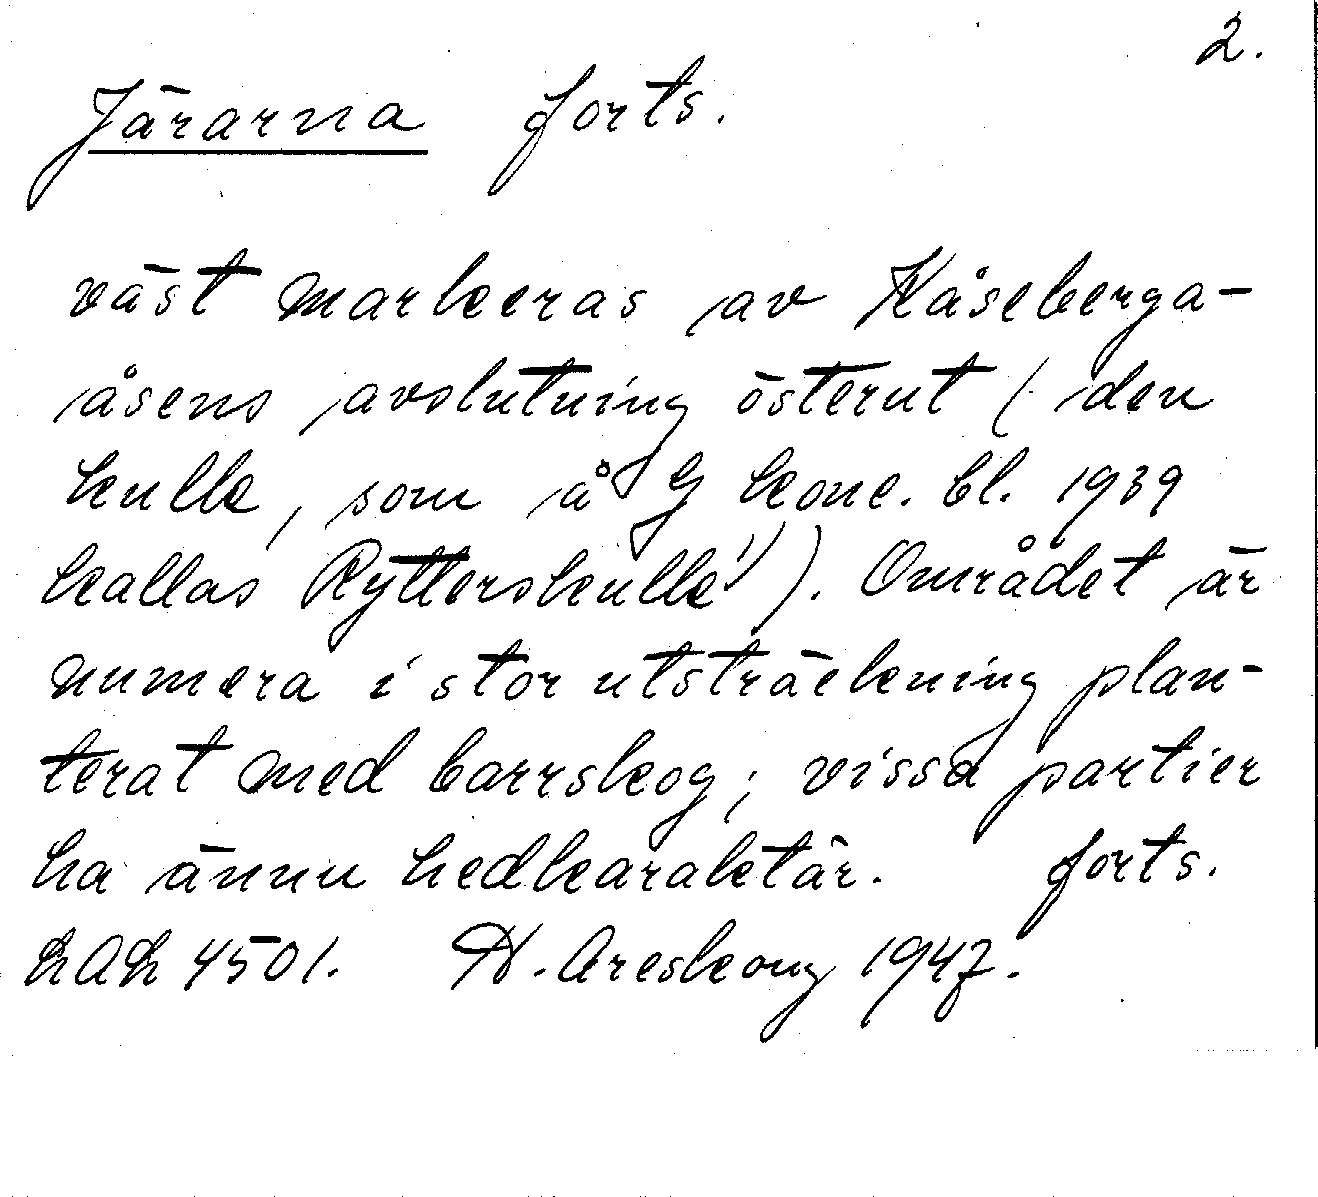 2.
Järarna forts.
väst markeras av Kåseberga-
åsens avslutning österut (den
kulle, som å G konc. bl. 1939
kallas Ryttershulle!). Området är
numera i stor utsträckning plan-
terat med barrskog; vissa partier
ha ännu hedkaraktär. forts.
LAL 4501. N. Areskoug 1947.